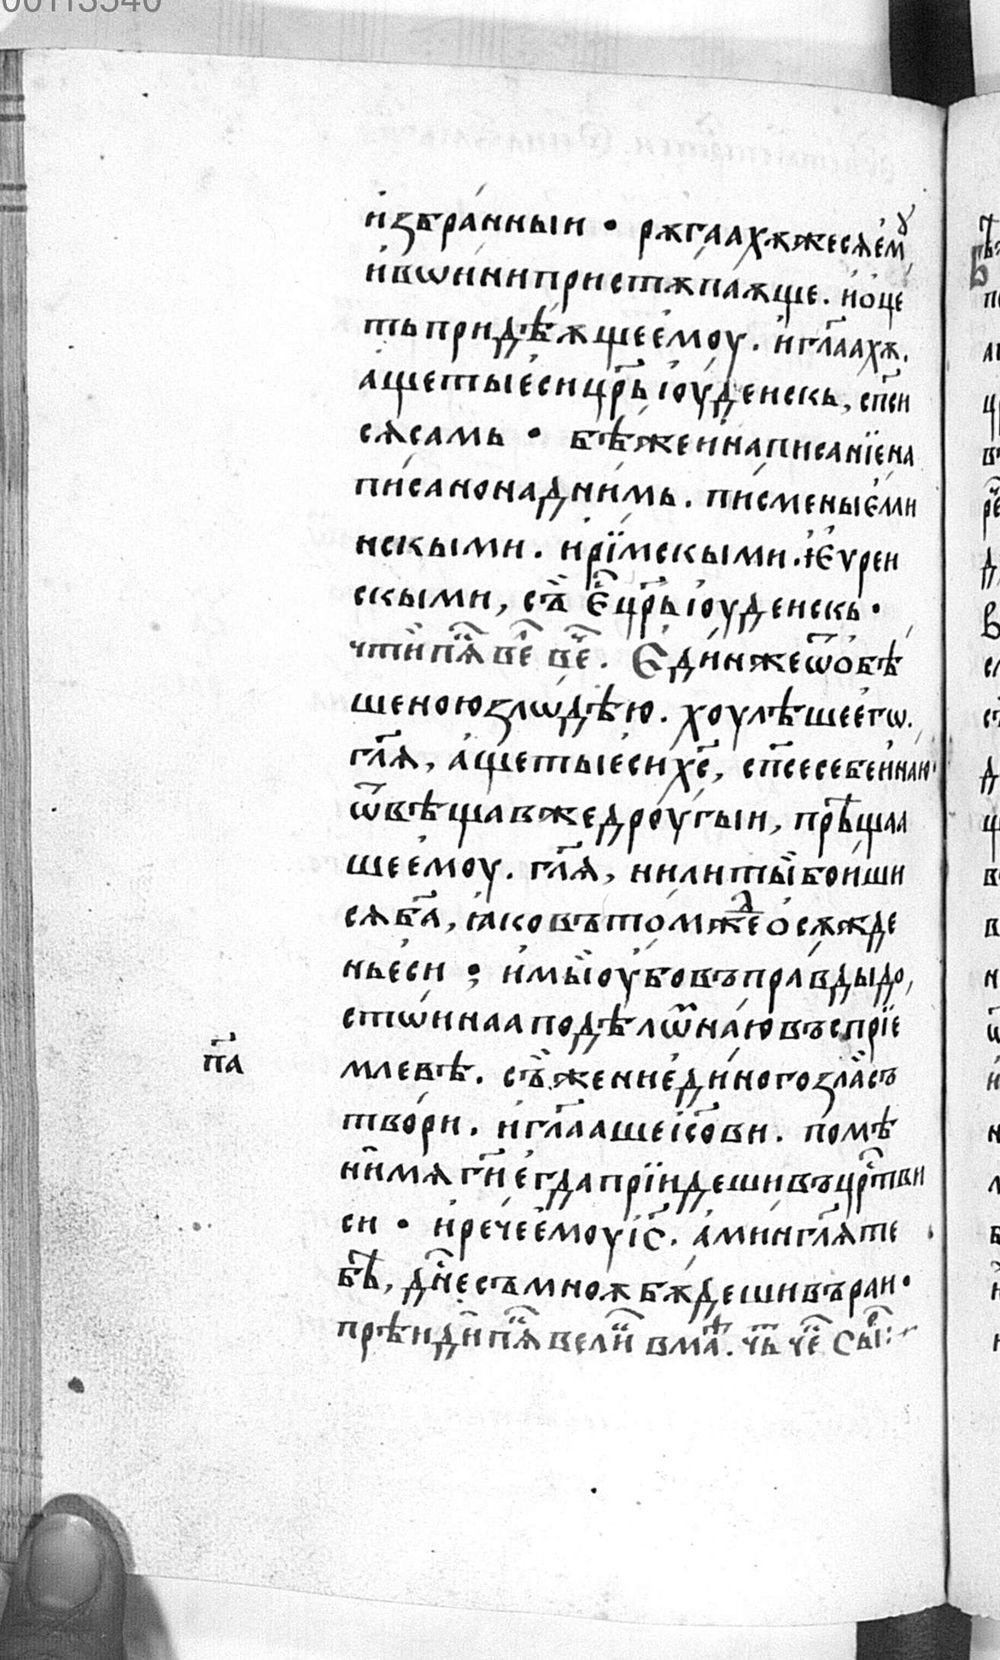 00113540
и҆збра́нныи · рѫга́ахѫжесѧе҆мꙋ
и҆вѡ́инипристѫпаѫще. и҆о҆це
тьпридѣѫщее҆моу. и҆гл҃аахѫ.
а҆щетые҆сицр҃ьі҆оуде́искь, сп҃си
сѧсамь · бѣжеи҆написанїена
пи́санонадни́мь. писменыє҆ли
нскыми. и҆ри́мскыми. и҆є҆ѵреи
скыми, съ̀ є҆с҃цр҃ьі҆оуде́искь ·
чтѝпѧ҃вє҃ вє҃. Є҆ди́нжеѿо҆бѣ
шеноюзлѡдѣ́ю. хоулѣшее҆гѡ.
гл҃ѧ, а҆щетые҆сихс҃, сп҃сесебеи҆наю·
ѿвѣщавжедроу́гыи, прѣ҃щаа
шее҆моу. гл҃ѧ, нилиты̀бои́ши
сѧба҃, ꙗ҆ковъто́мжⷣео҆сѫжде
нье҆си ; и҆мы̀оу҆бовъпра́вдыдо,
стѡ́инаапо́дѣлѡⷨна́ювъспрїе
млевѣ. съ̀жениє҆ди́ногозла̀съ
пв҃а
тво́ри. и҆гл҃аашеі҆со҃ви. помѣ
ни́мѧгн҃ие҆гдапрїи́дешивъцрⷭ҇тви
си · и҆рече́е҆моуі҆с҃. а҆мингл҃ѧте
бѣ, дн҃есъмноѫбѫ́дешивъраи ·
прѣидѝпѧ҃вели҃ вма҃. чь҃ че҃ сы҃:~